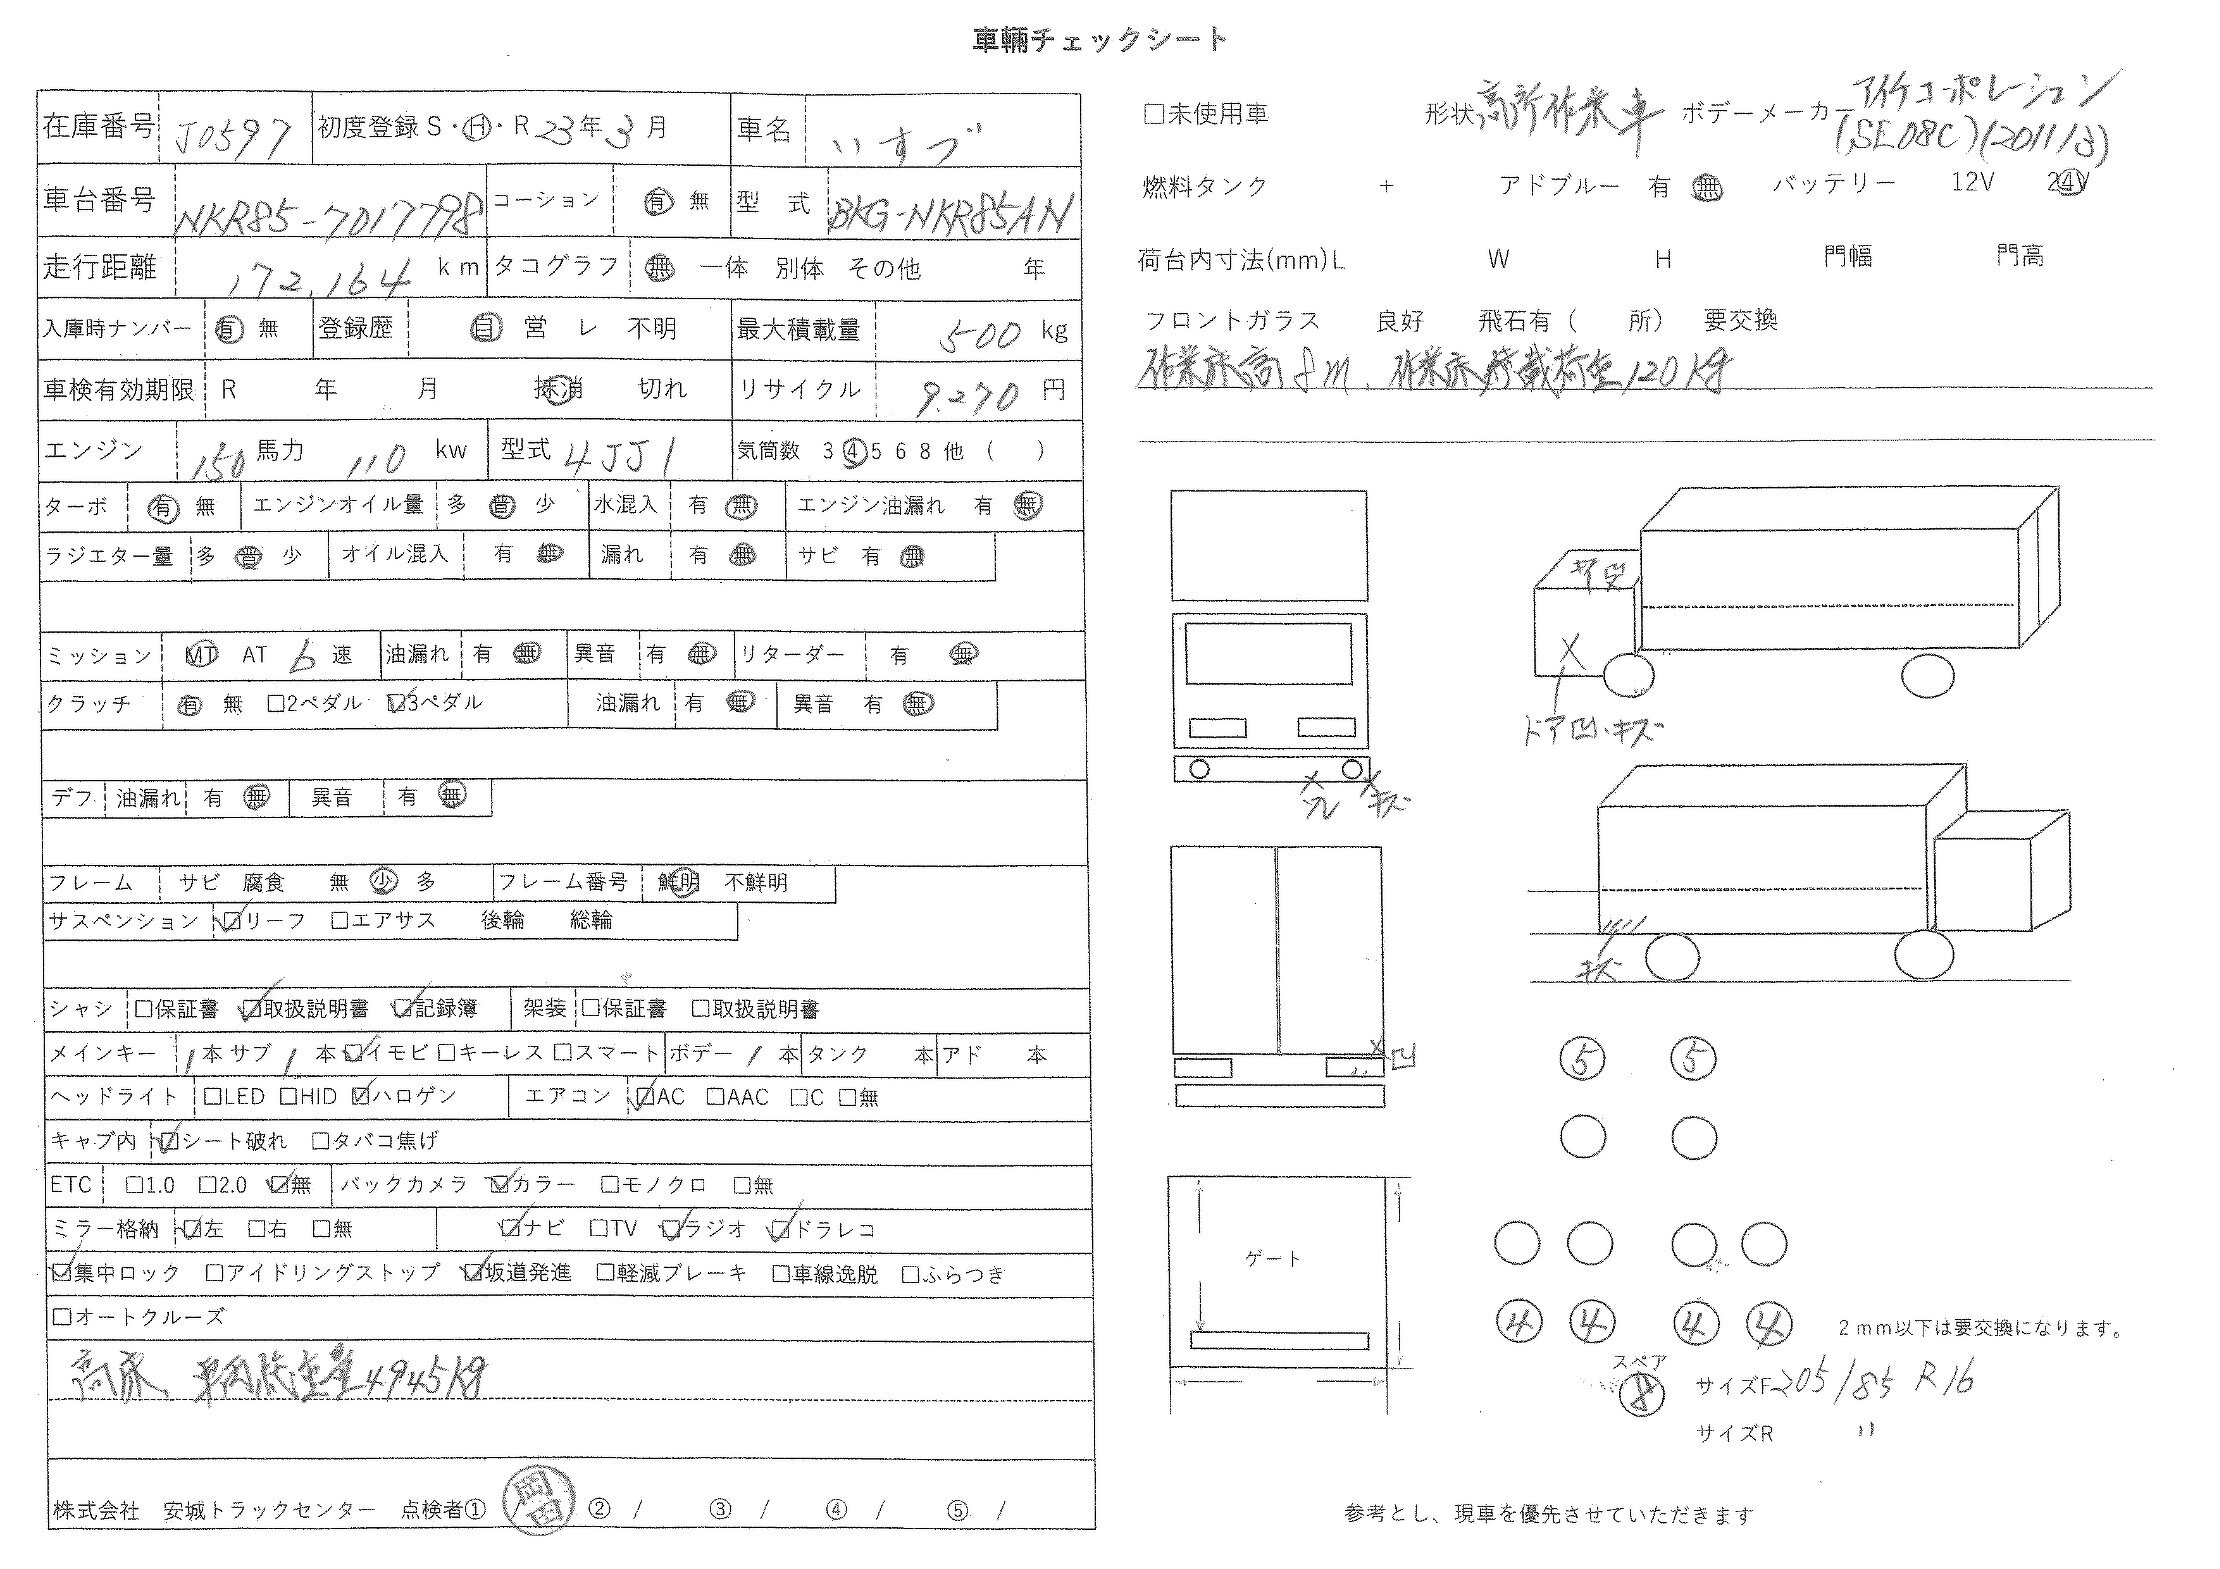 車輛チェックシート
在庫番号 J0597 初度登録 S・Ⓗ・R 23年 3月 車名 いすゞ
車台番号 NKR85-7017798 コーション 有 無 型 式 BKG-NKR85AN
走行距離 172,164 km タコグラフ 無 一体 別体 その他 年
入庫時ナンバー 有 無 登録歴 自 営 レ 不明 最大積載量 500 kg
車検有効期限 R 年 月 抹消 切れ リサイクル 9,270 円
エンジン 150 馬力 110 kw 型式 4JJ1 気筒数 3 ④ 5 6 8 他 ( )
ターボ 有 無 エンジンオイル量 多 普 少 水混入 有 無 エンジン油漏れ 有 無
ラジエター量 多 普 少 オイル混入 有 無 漏れ 有 無 サビ 有 無
ミッション MT AT 6 速 油漏れ 有 無 異音 有 無 リターダー 有 無
クラッチ 有 無 □2ペダル ☑3ペダル 油漏れ 有 無 異音 有 無
デフ 油漏れ 有 無 異音 有 無
フレーム サビ 腐食 無 少 多 フレーム番号 鮮明 不鮮明
サスペンション ☑リーフ □エアサス 後輪 総輪
シャシ □保証書 ☑取扱説明書 ☑記録簿 架装 □保証書 □取扱説明書
メインキー 1本 サブ 1本 ☑イモビ □キーレス □スマート ボデー 1本 タンク 本 アド 本
ヘッドライト □LED □HID ☑ハロゲン エアコン ☑AC □AAC □C □無
キャブ内 ☑シート破れ □タバコ焦げ
ETC □1.0 □2.0 ☑無 バックカメラ ☑カラー □モノクロ □無
ミラー格納 ☑左 □右 □無 ☑ナビ □TV ☑ラジオ ☑ドラレコ
☑集中ロック □アイドリングストップ ☑坂道発進 □軽減ブレーキ □車線逸脱 □ふらつき
□オートクルーズ
高床 車両総重量4945kg
株式会社 安城トラックセンター 点検者① / 岡田 ② / ③ / ④ / ⑤ /
□未使用車 形状 高所作業車 ボデーメーカー アイチコーポレーション
(SE08C)(2011/3)
燃料タンク + アドブルー 有 無 バッテリー 12V 24V
荷台内寸法(mm) L W H 門幅 門高
フロントガラス 良好 飛石有 ( 所) 要交換
作業床高8m、作業床積載荷重120kg
キズ 凹
X
ドア凹・キズ
X X
ワレ キズ
キズ
X凹
⑤ ⑤
ゲート
④ ④ ④ ④ 2mm以下は要交換になります。
スペア
⑧ サイズF 205/85 R16
サイズR 〃
参考とし、現車を優先させていただきます